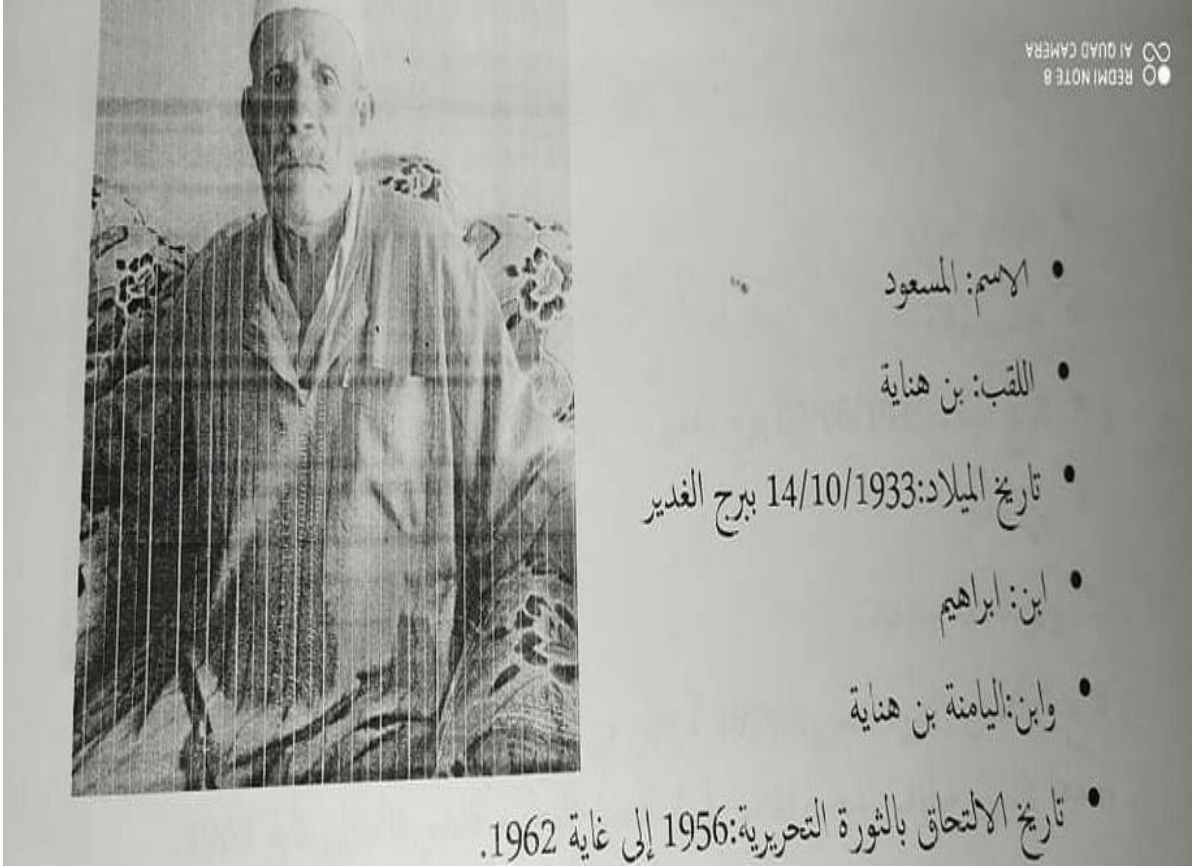 REDMI NOTE 8
AI QUAD CAMERA
• الاسم: المسعود
• اللقب: بن هناية
• تاريخ الميلاد:14/10/1933 ببرج الغدير
• ابن: ابراهيم
• وابن:اليامنة بن هناية
• تاريخ الالتحاق بالثورة التحريرية:1956 إلى غاية 1962.